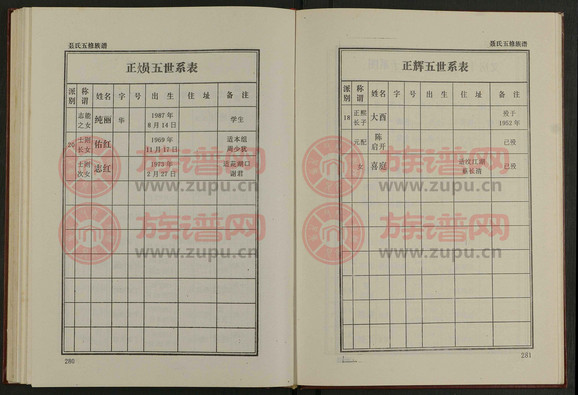 聂氏五修族谱
正焕五世系表
派别 称谓 姓名 字 号 出生 住址 备注
志能之女 纯丽 华 1987年8月14日 学生
20 士刚长女 佑红 1969年11月17日 适本组
士刚次女 志红 1973年2月27日 谢君
280
聂氏五修族谱
正辉五世系表
派别 称谓 姓名 字 号 出生 住址 备注
18 正熙长子 大酉 殁于1952年
元配 陈启开 已殁
女 喜庭 已殁
281
族谱网
www.zupu.cn
族谱网
www.zupu.cn